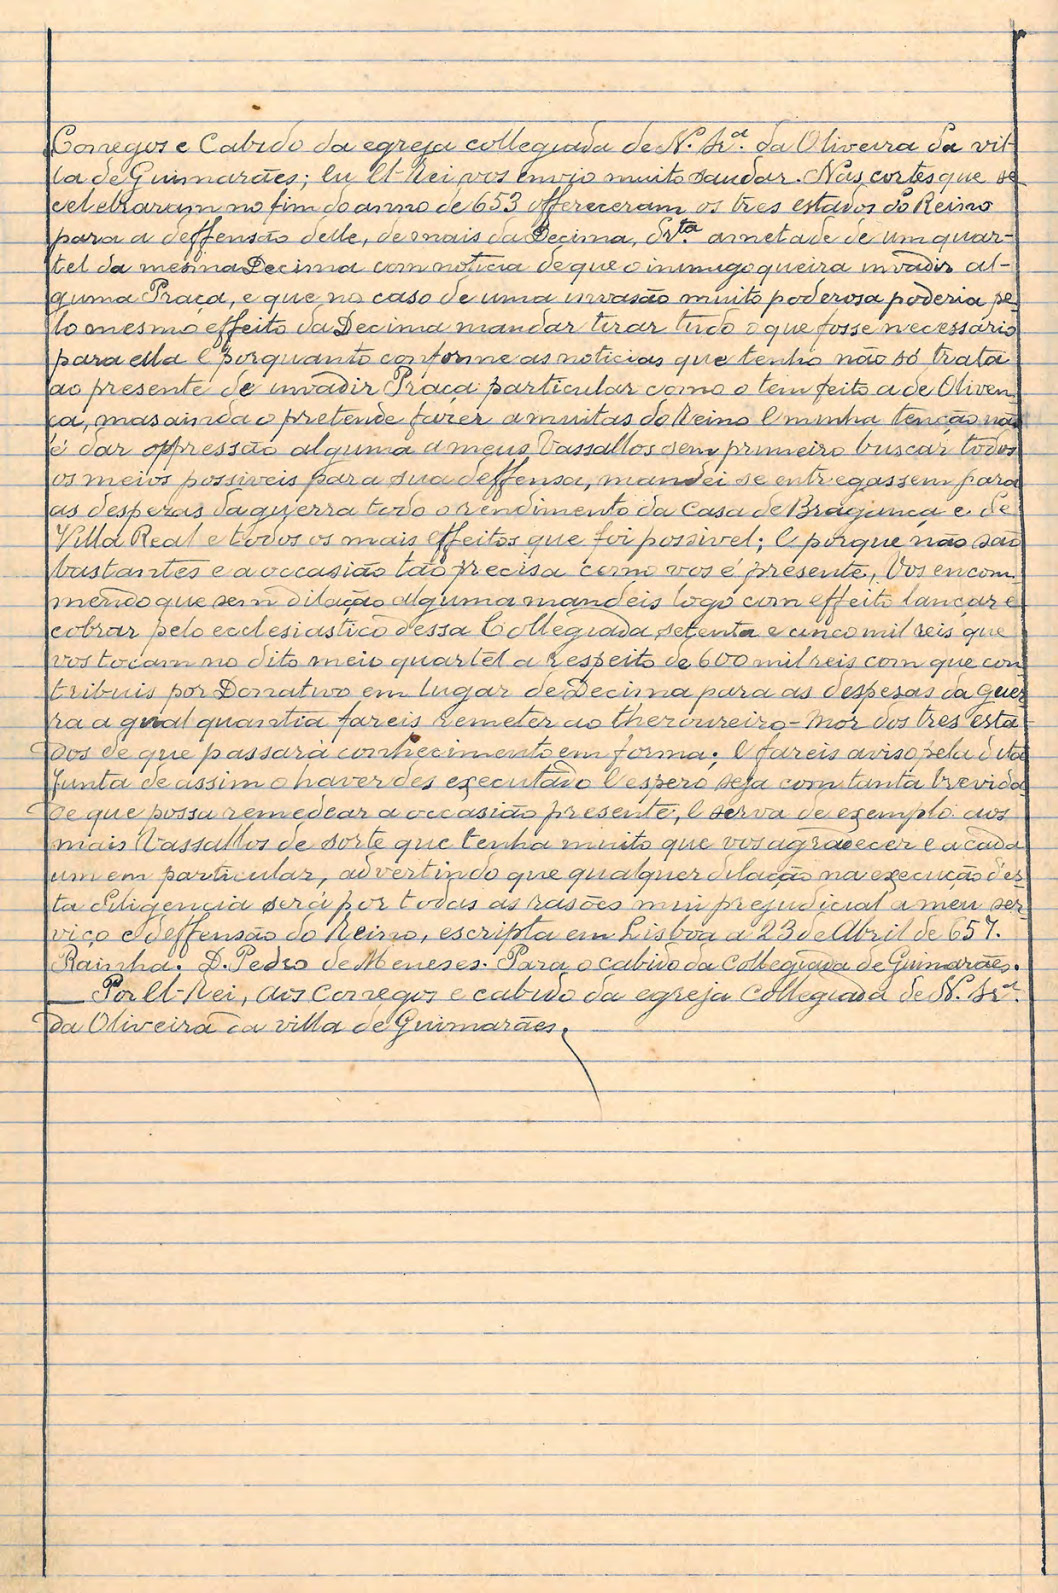 Conegos e Cabido da egreja collegiada de N. Sr.ª da Oliveira da vil-
la de Guimarães; Eu El-Rei vos envio muito saudar. Nas cortes que se
celebraram no fim do anno de 653 offereceram os tres estados do Reino
para a deffensão delle, de mais da Decima, ametade de um quar-
tel da mesma Decima com noticia de que o inimigo queira invadir al-
guma Praça, e que no caso de uma invasão muito poderosa poderia pe-
lo mesmo effeito da Decima mandar tirar tudo o que fosse necessario
para ella E porquanto conforme as noticias que tenho não só trata
ao presente de invadir Praça particular como o tem feito a de Oliven
ça, mas ainda o pretende fazer a muitas do Reino E minha tenção não
é dar oppressão alguma a meus Vassallos sem primeiro buscar todos
os meios possiveis para sua deffensa, mandei se entregassem para
as despezas da guerra todo o rendimento da Casa de Bragança e de
Villa Real e todos os mais effeitos que foi possivel; E porque não são
bastantes e a occasião tão precisa como vos é presente, Vos encom
mendo que sem dilação alguma mandeis logo com effeito lançar e
cobrar pelo ecclesiastico dessa Collegiada setenta e cinco mil reis que
vos tocam no dito meio quartel a respeito de 600 mil reis com que con
tribuis por Donativo em lugar de Decima para as despesas da guer
ra a qual quantia fareis remeter ao thezoureiro-mor dos tres esta
dos de que passará conhecimento em forma; E fareis aviso pela dita
Junta de assim o haverdes executado E espero seja com tanta brevida
de que possa remedear a occasião presente, E serva de exemplo aos
mais Vassallos de sorte que tenha muito que vos agradecer e a cada
um em particular, advertindo que qualquer dilação na execução des
ta diligencia será por todas as rasões mui prejudicial a meu ser
viço e deffensão do Reino, escripta em Lisboa a 23 de Abril de 657.
Rainha. D. Pedro de Meneses. Para o cabido da Collegiada de Guimarães.
Por El-Rei, Aos Conegos e cabido da egreja Collegiada de N. Sr.ª
da Oliveira da villa de Guimarães.